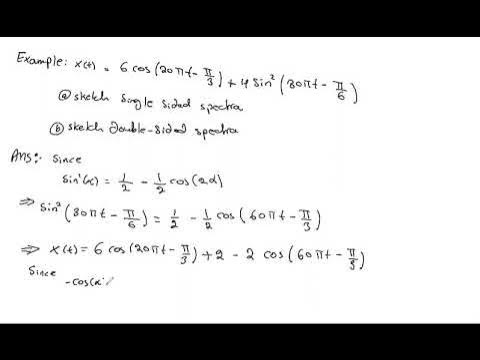 Example: x(t) = 6 cos(20πt - π/3) + 4 sin²(30πt - π/6)
ⓐ sketch single sided spectra
ⓑ sketch double-sided spectra
Ans:- Since
sin²(α) = 1/2 - 1/2 cos(2α)
⇒ sin²(30πt - π/6) = 1/2 - 1/2 cos(60πt - π/3)
⇒ x(t) = 6 cos(20πt - π/3) + 2 - 2 cos(60πt - π/3)
Since
-cos(x